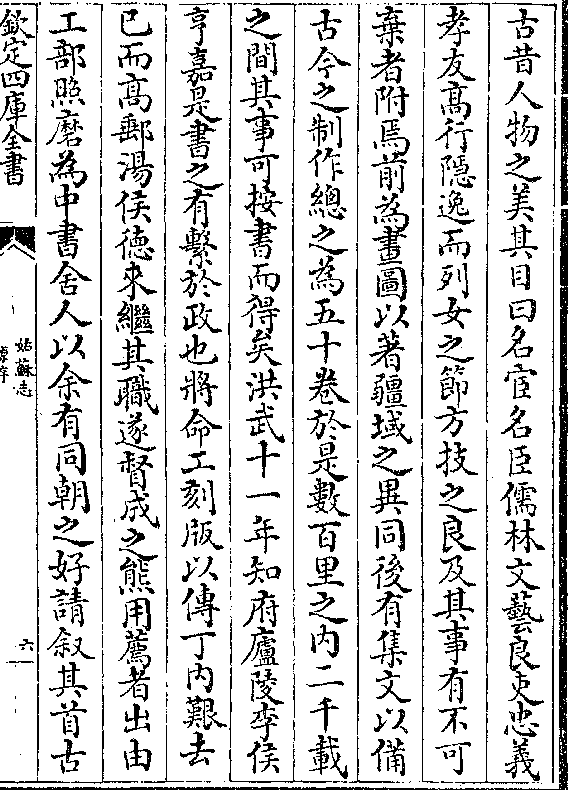 古昔人物之美其目曰名宦名臣儒林文藝良吏忠義
孝友髙行隱逸而列女之節方技之良及其事有不可
棄者附焉前為畫圖以著疆域之異同後有集文以備
古今之制作總之為五十卷於是數百里之内二千載
之間其事可按書而得矣洪武十一年知府廬陵李侯
亨嘉是書之有繫於政也將命工刻版以傳丁内艱去
已而髙郵湯侯徳來繼其職遂督成之熊用薦者出由
工部照磨為中書舍人以余有同朝之好請叙其首古
欽定四庫全書
姑蘇志
六